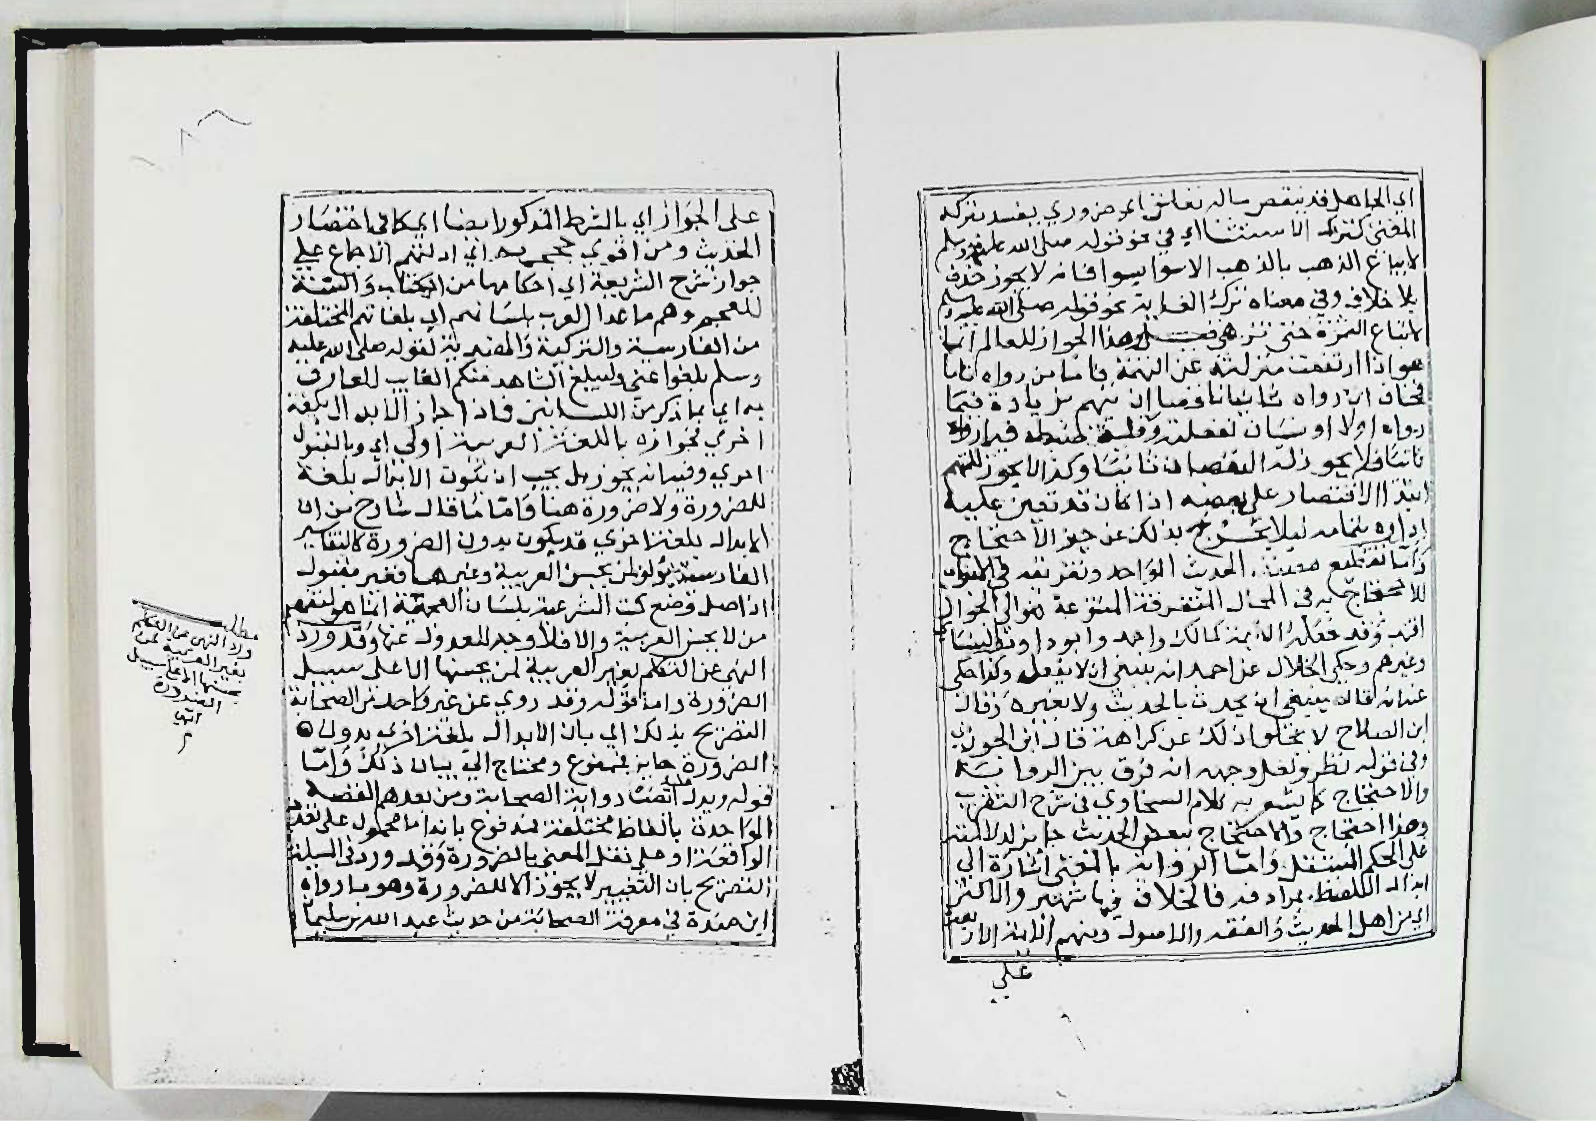 اي الجاهل قد ينقص ماله تعلق اي ضروري يفسد بتركه
المعنى كترك الاستثناء اي في نحو قوله صلى الله عليه وسلم
لا يباع الذهب بالذهب الا سواء بسواء فانه لا يجوز حذف
بلا خلاف وفي معناه ترك الغاية نحو قوله صلى الله عليه وسلم
لا تباع الثمرة حتى تزهى وهذا الجواز للعالم انما
هو اذا ارتفعت منزلته عن التهمة فاما من رواه تاما
فخاف ان رواه ثانيا ناقصا ان يتهم بزيادة فيما
رواه اولا او نسيان لغفلة وقلة ضبطه فيما رواه
ثانيا فلا يجوز له النقصان ثانيا وكذا لا يجوز للمتهم
ابتداء الاقتصار على بعضه اذا كان قد تعين عليه
اداؤه بتمامه ليلا يخرج بذلك عن حيز الاحتجاج
واما تقطيع الحديث الواحد وتفرقته في الابواب
للاحتجاج به في المحال المتفرقة المتنوعة فهو الى الجواز
اقرب وقد فعله الائمة كمالك واحمد وابو داود والنسائي
وغيرهم وحكى الخلال عن احمد انه ينبغي ان لا يفعله وكذا حكى
عنه انه قال ينبغي ان يحدث بالحديث ولا يغيره وقال
ابن الصلاح لا يخلو ذلك عن كراهة قال ابن الجوزي
وفي قوله نظر ولعل وجهه انه فرق بين الرواية
والاحتجاج كما يشعر به كلام السخاوي في شرح التقريب
وهذا احتجاج والاحتجاج ببعض الحديث جايز لدلالته
على الحكم المستقل واما الرواية بالمعنى اشارة الى
ابدال اللفظ بمرادفه فالخلاف فيها شهير والاكثر
اي من اهل الحديث والفقه والاصول ومنهم الائمة الاربعة
على
على الجواز اي بالشرط المذكور ايضا اي كما في اختصار
الحديث ومن اقوى حججهم اي ادلتهم الاجماع على
جواز شرح الشريعة اي احكامها من الكتاب والسنة
للعجم وهم ما عدا العرب بلسانهم اي بلغاتهم المختلفة
من الفارسية والتركية والهندية لقوله صلى الله عليه
وسلم بلغوا عني وليبلغ الشاهد منكم الغايب للعارف
به اي بما ذكر من اللسانين فاذا جاز الابدال بلغة
اخرى فجوازه باللغة العربية اولى اي وبالقبول
احرى وفيه انه يجوز بل يجب ان تكون الابدال بلغة
للضرورة ولا ضرورة هنا واما ما قال شارح من ان
الابدال بلغة اخرى قد يكون بدون الضرورة كالتفاسير
الفارسية لمن يحسن العربية وغيرهما فغير مقبول
اذ اصل وضع كتب الشرعية بلسان العجمية انما هو لتفهيم
من لا يحسن العربية والا فلا وجه للعدول عنها وقد ورد
النهي عن التكلم بغير العربية لمن يحسنها الا على سبيل
الضرورة واما قوله وقد روي عن غير واحد من الصحابة
التصريح بذلك اي بان الابدال بلغة اخرى بدون
الضرورة جايز فممنوع ومحتاج الى بيان ذلك واما
قوله ويدل عليه ايضا رواية الصحابة ومن بعدهم القصة
الواحدة بالفاظ مختلفة فمدفوع بانه اما محمول على تعدد
الواقعة او على نقل المعنى بالضرورة وقد ورد في المسئلة
التصريح بان التغيير لا يجوز الا للضرورة وهو ما رواه
ابن مندة في معرفة الصحابة من حديث عبد الله بن سليمان
مطلب
ورد النهي عن التكلم
بغير العربية لمن
يحسنها الا على سبيل
الضرورة
انتهى